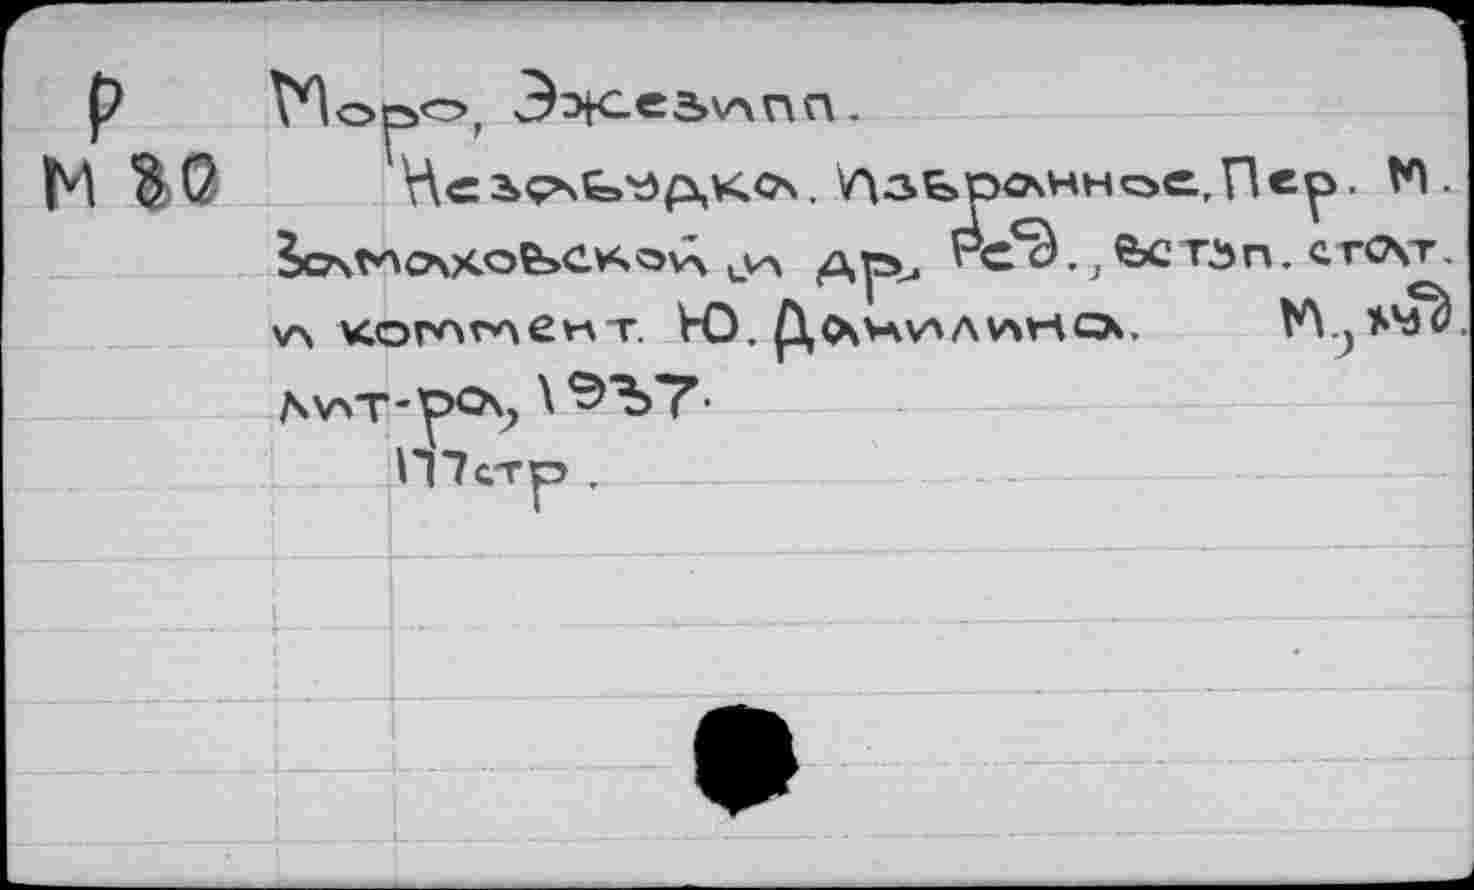 Р Моро, Эжезипп.
М 80 Незабудка. Избранное. Пер. М.
Замаховской и др. Ред., вступ. стат.
и коммент. Ю. Данилина. М., худ.
лит-ра, 1937.
стр.